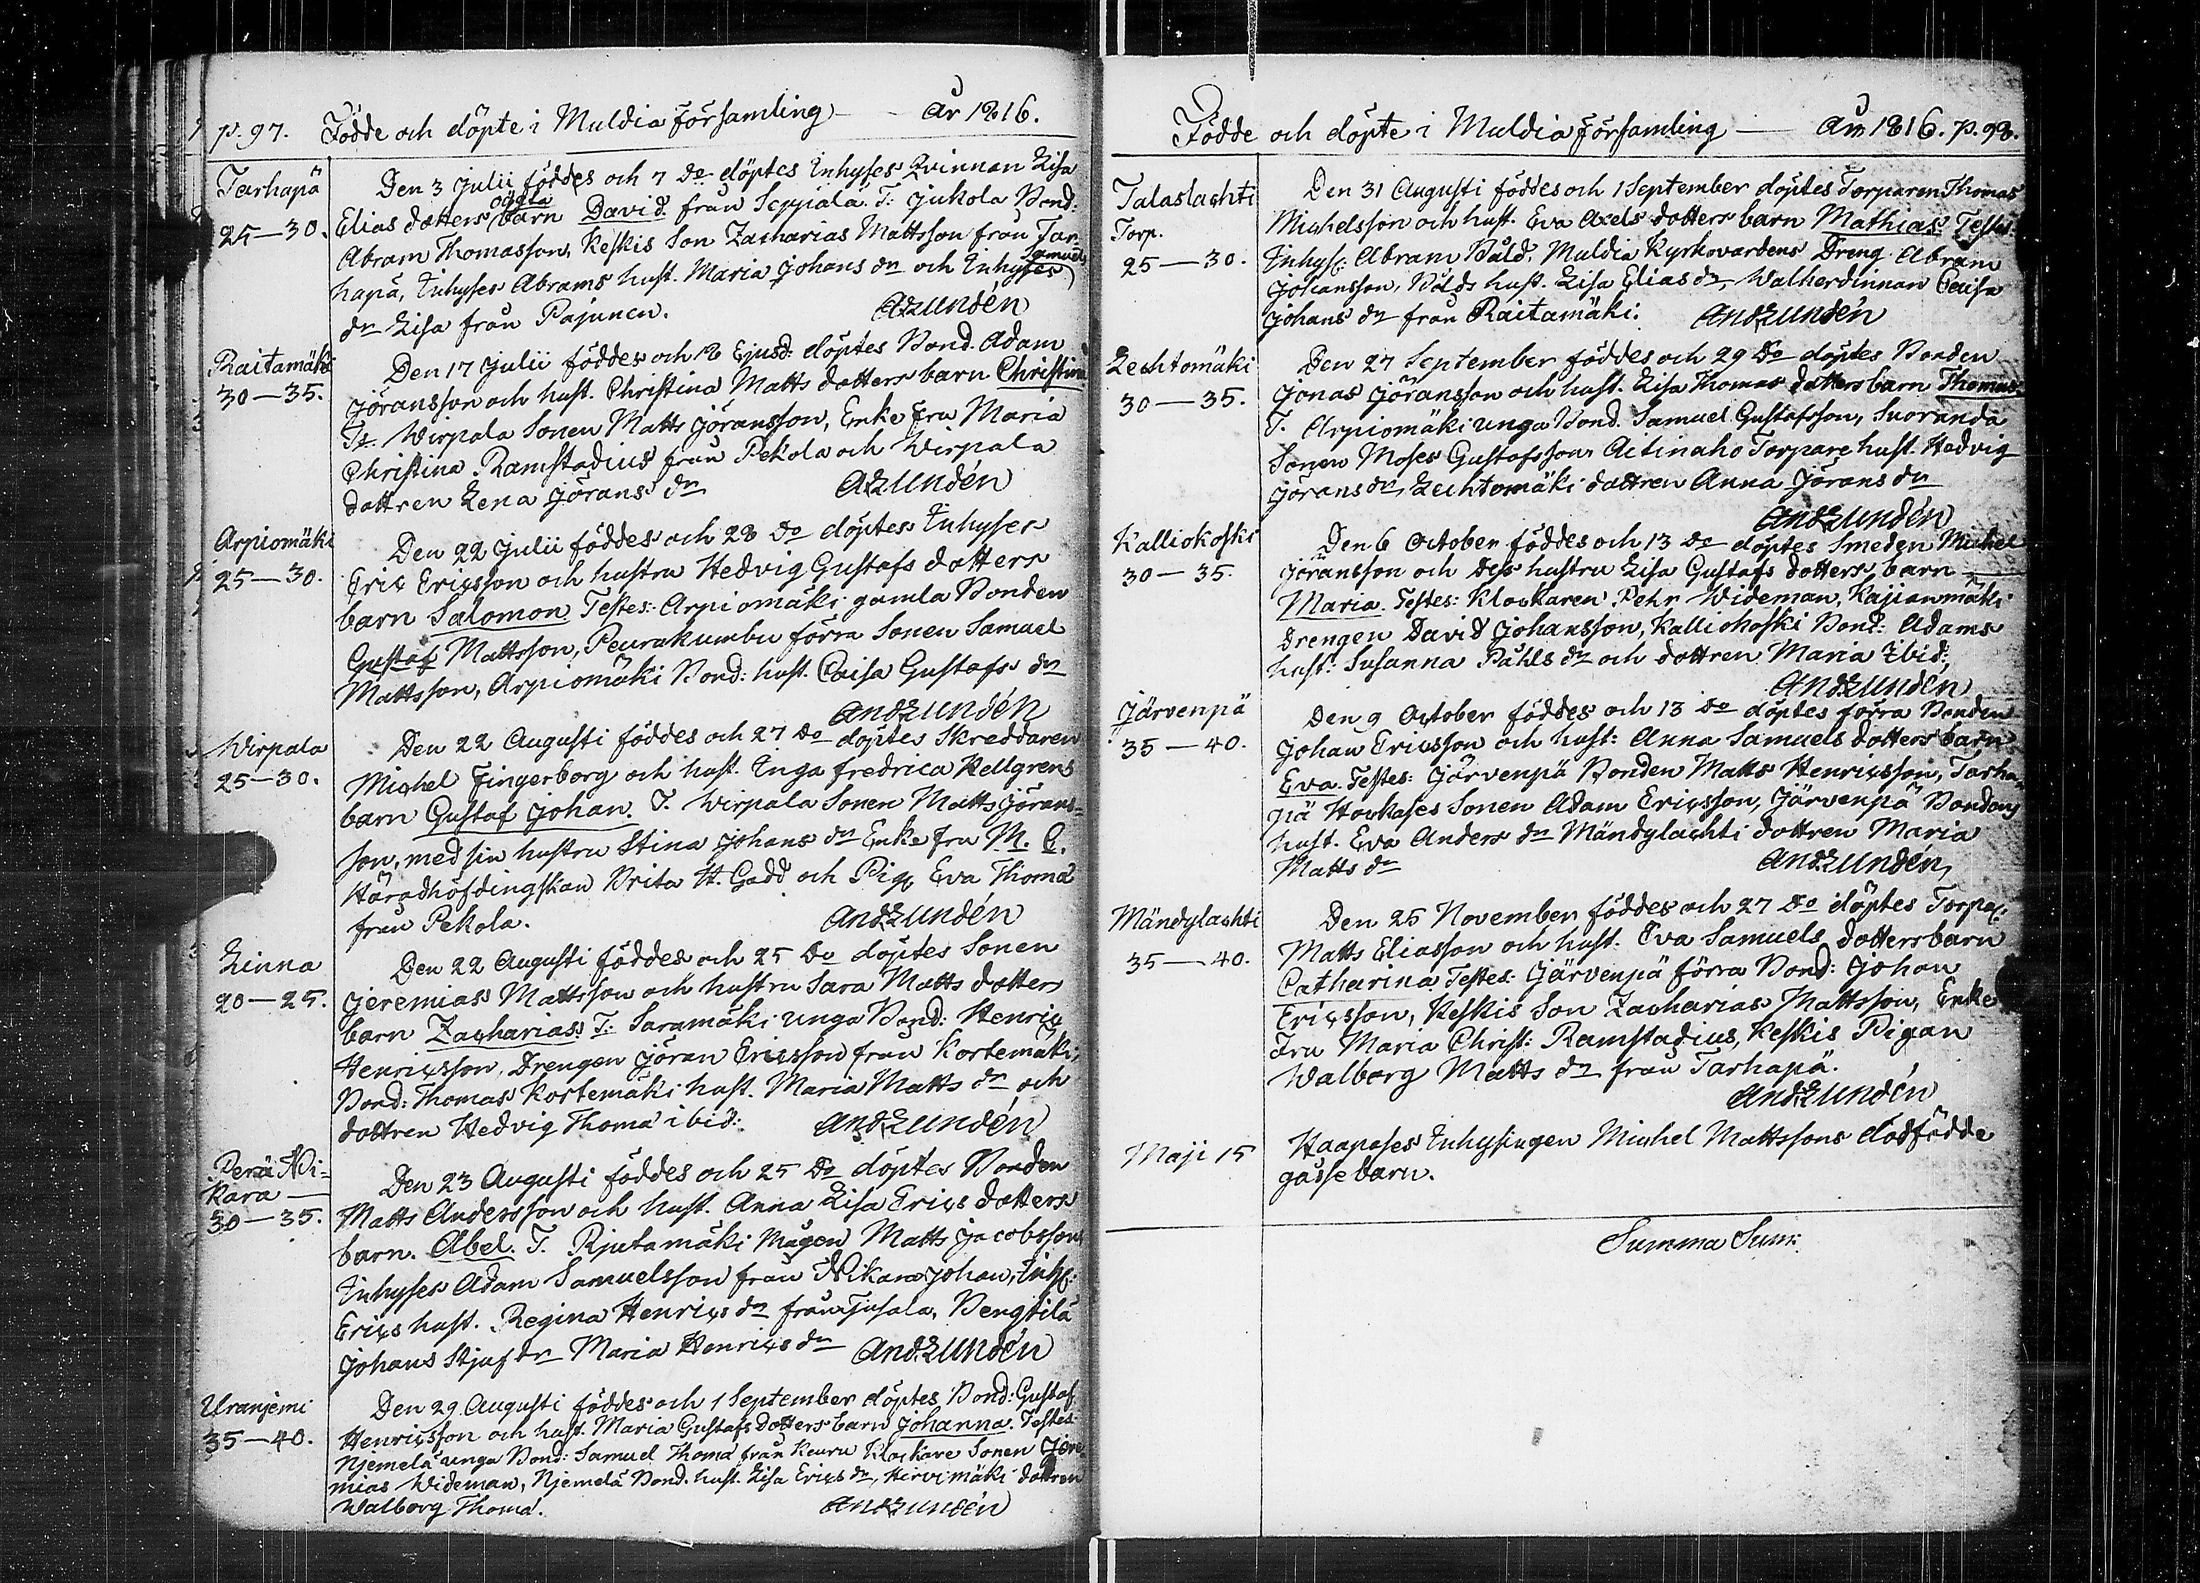 p. 97. Födde och döpte i Muldia Församling — år 1816.
Tarhapä
25—30.
Den 3 Julii föddes och 7 do döptes Inhyses Qvinnan Lisa
Elias dotters oägta barn David från Seppälä. T: Jukola Bond:
Abram Thomasson, Keskis Son Zacharias Mattsson från Tar-
hapä, Inhyses Abrams hust. Maria Johans dr och Inhyses Samuels
dr Lisa från Pajunen. A Lundén
Raitamäki
30—35.
Den 17 Julii föddes och 18 Ejusd: döptes Bond. Adam
Jöransson och hust. Christina Matts dotters barn Christina
T. Wirpala Sonen Matts Jöransson, Enke Fru Maria
Christina Ramstadius från Pekola och Wirpala
dottren Lena Jörans dr A Lundén
Arpiomäki
25—30.
Den 22 Julii föddes och 28 do döptes Inhyses
Eric Ericsson och hustru Hedvig Gustafs dotters
barn Salomon. Testes: Arpiomäki gamla Bonden
Gustaf Mattsson, Peurakumbu förra Sonen Samuel
Mattsson, Arpiomäki Bond: hust. Caisa Gustafs dr
And Lundén
Wirpala
25—30.
Den 22 Augusti föddes och 27 do döptes Skreddaren
Michel Fingerborg och hust. Inga Fredrica Hellgrens
barn Gustaf Johan. T. Wirpala Sonen Matts Jörans-
son, med sin hustru Stina Johans dr Enke fru M. C.
Häradhöfdingskan Brita H. Gadd och Pig. Eva Thomæ
från Pekola. And Lundén
Linna
20—25.
Den 22 Augusti föddes och 25 do döptes Sonen
Jeremias Mattsson och hustru Sara Matts dotters
barn Zacharias. T: Saramäki unga Bond: Henric
Henricsson, Drengen Jöran Ericsson från Kortemäki,
Bond: Thomas Kortemäki hust. Maria Matts dr och
dottren Hedvig Thomæ ibid: And Lundén
Perä Ni-
kara —
30—35.
Den 23 Augusti föddes och 25 do döptes Bonden
Matts Andersson och hust. Anna Lisa Erics dotters
barn. Abel. T. Rjutamäki Mågen Matts Jacobsson,
Inhyses Adam Samuelsson från Nikara Johan, Inhs:
Erics hust. Regina Henrics dr från Tusala, Bengtilä
Johans Stjufdr Maria Henrics dr And Lundén
Uranjemi
35—40.
Den 29 Augusti föddes och 1 September döptes Bond: Gustaf
Henricsson och hust. Maria Gustafs dotters barn Johanna. Testes:
Njemelä unga Bond: Samuel Thomæ från Keuru Klockare Sonen Jere-
mias Wideman, Njemelä Bond. hust. Lisa Erics dr, Hirvimäki dottren
Walborg Thomæ. And Lundén
Födde och döpte i Muldia Församling — år 1816. p. 98.
Talaslachti
Torp.
25—30.
Den 31 Augusti föddes och 1 September döptes Torparen Thomas
Michelsson och hust. Eva Axels dotters barn Mathias. Testes:
Inhys: Abram Båld, Muldia Kyrkovardens Dreng Abram
Johansson, Bålds hust. Lisa Elias dr, Walherdinnan Caisa
Johans dr från Raitamäki. And Lundén
Lechtomäki
30—35.
Den 27 September föddes och 29 do döptes Bonden
Jonas Jöransson och hust. Lisa Thomas dotters barn Thomas.
T. Arpiomäki unga Bond. Samuel Gustafsson, Suoranda
Sonen Moses Gustafsson, Aitinaho Torpare hust. Hedvig
Jörans dr, Lechtomäki dottren Anna Jörans dr
And Lundén
Kalliokoski
30—35.
Den 6 October föddes och 13 do döptes Smeden Michel
Jöransson och dess hustru Lisa Gustafs dotters barn —
Maria. Testes: Klockaren Pehr Wideman, Kajianmäki
Drengen David Johansson, Kalliokoski Bond: Adams
hust: Susanna Påhls dr och dottren Maria Ibid:
And Lundén
Järvenpä
35—40.
Den 9 October föddes och 13 do döptes förra Bonden
Johan Ericsson och hust: Anna Samuels dotters barn
Eva. Testes: Järvenpä Bonden Matts Henricsson, Tarha-
pä Houkases Sonen Adam Ericsson, Järvenpä Bondens
hust. Eva Anders dr Mändylachti dottren Maria
Matts dr And Lundén
Mändylachti
35—40.
Den 25 November föddes och 27 do döptes Torpa:
Matts Eliasson och hust. Eva Samuels dotters barn
Catharina Testes: Järvenpä förra Bond: Johan
Ericsson, Keskis Son Zacharias Mattsson, Enke
Fru Maria Christ: Ramstadius, Keskis Pigan
Walborg Matts dr från Tarhapä.
And Lundén
Maji 15
Haapases Inhysingen Michel Mattssons dödfödde
gossebarn.
Summa Sum: